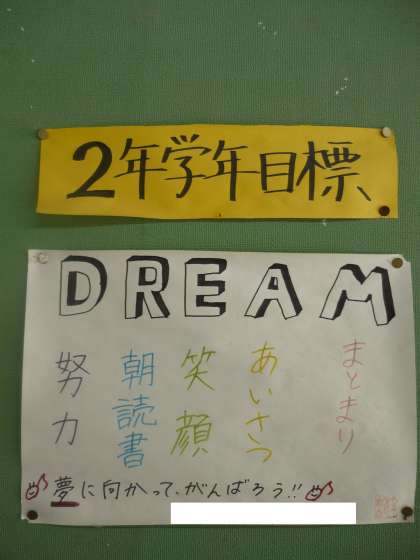 2年学年目標
DREAM
努力
朝読書
笑顔
あいさつ
まとまり
夢に向かって、がんばろう!!